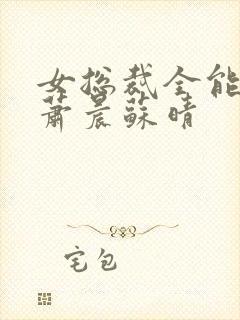 女总裁全能
萧晨苏晴
宅包